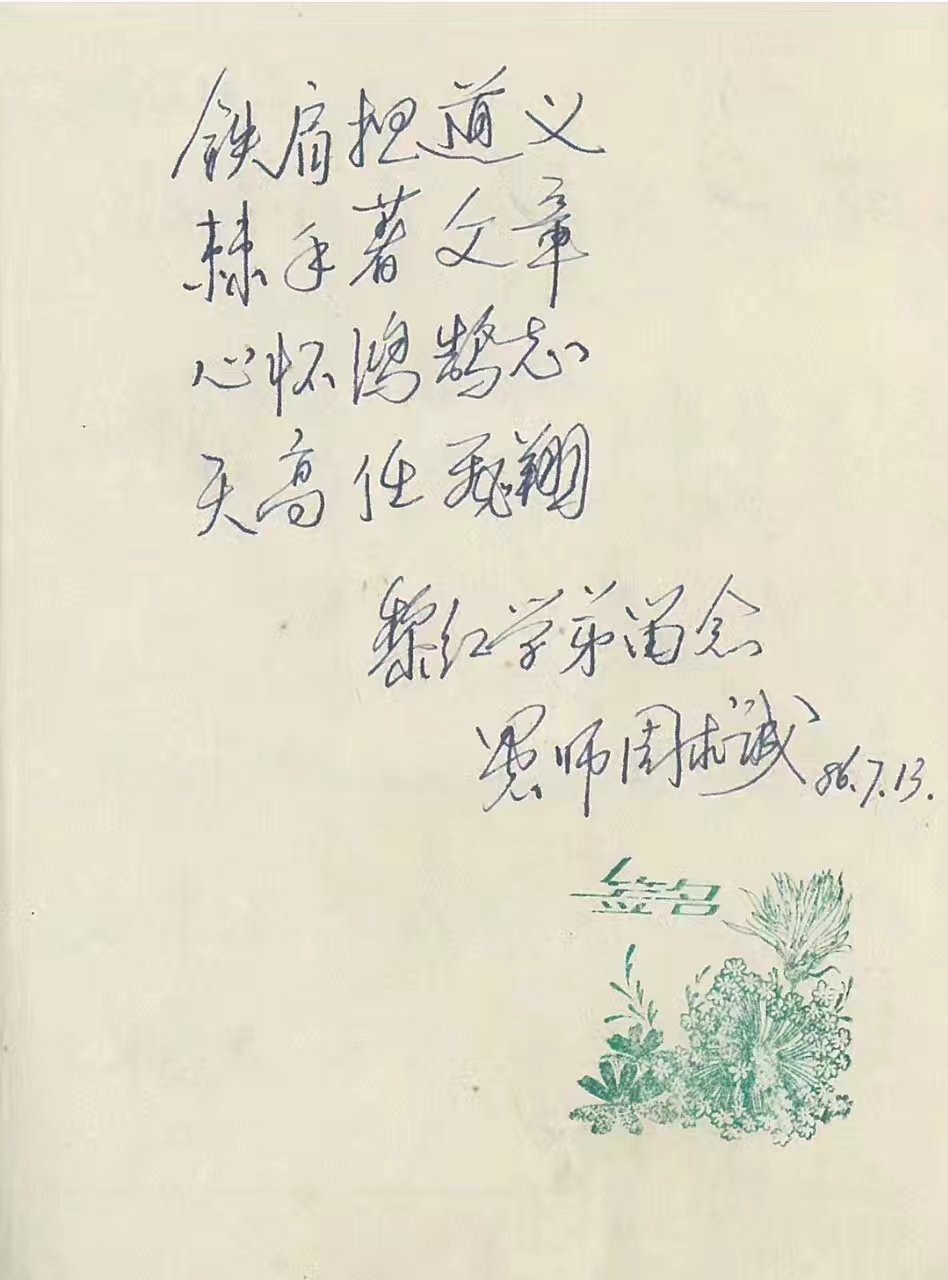 铁肩担道义
棘手著文章
心怀鸿鹄志
天高任飞翔
黎红学弟留念
愚师周诚 86.7.13.
签名